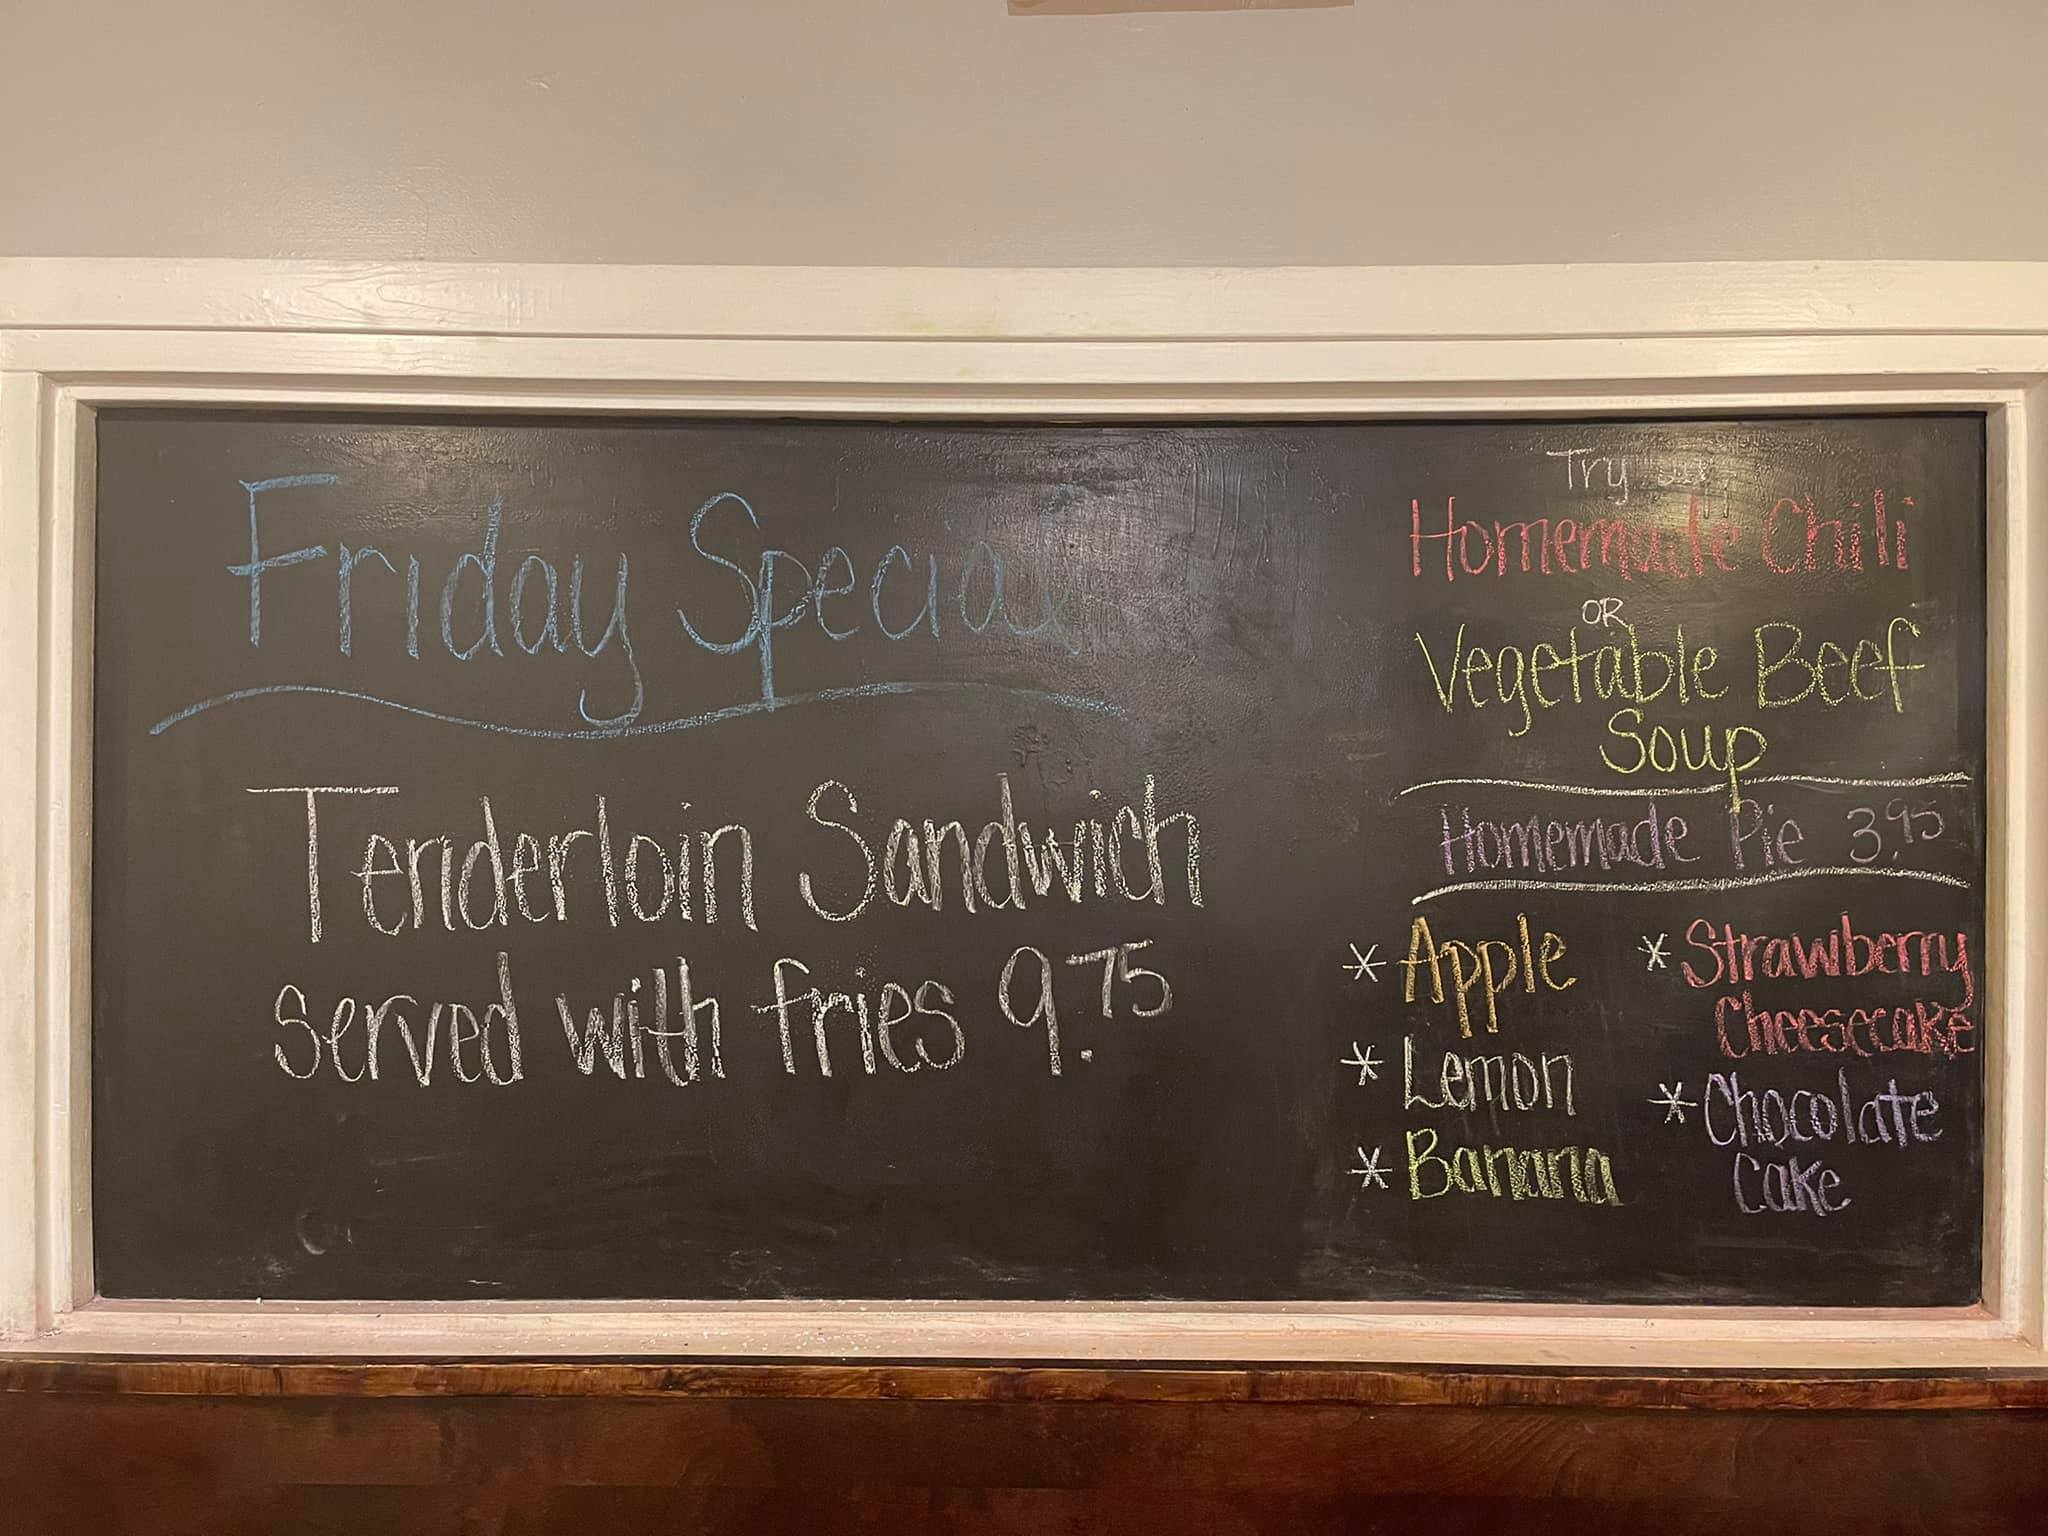 Friday Special
Tenderloin Sandwich
served with fries 9.75
Try our
Homemade Chili
OR
Vegetable Beef
Soup
Homemade Pie 3.95
* Apple
* Lemon
* Banana
* Strawberry
Cheesecake
* Chocolate
Cake